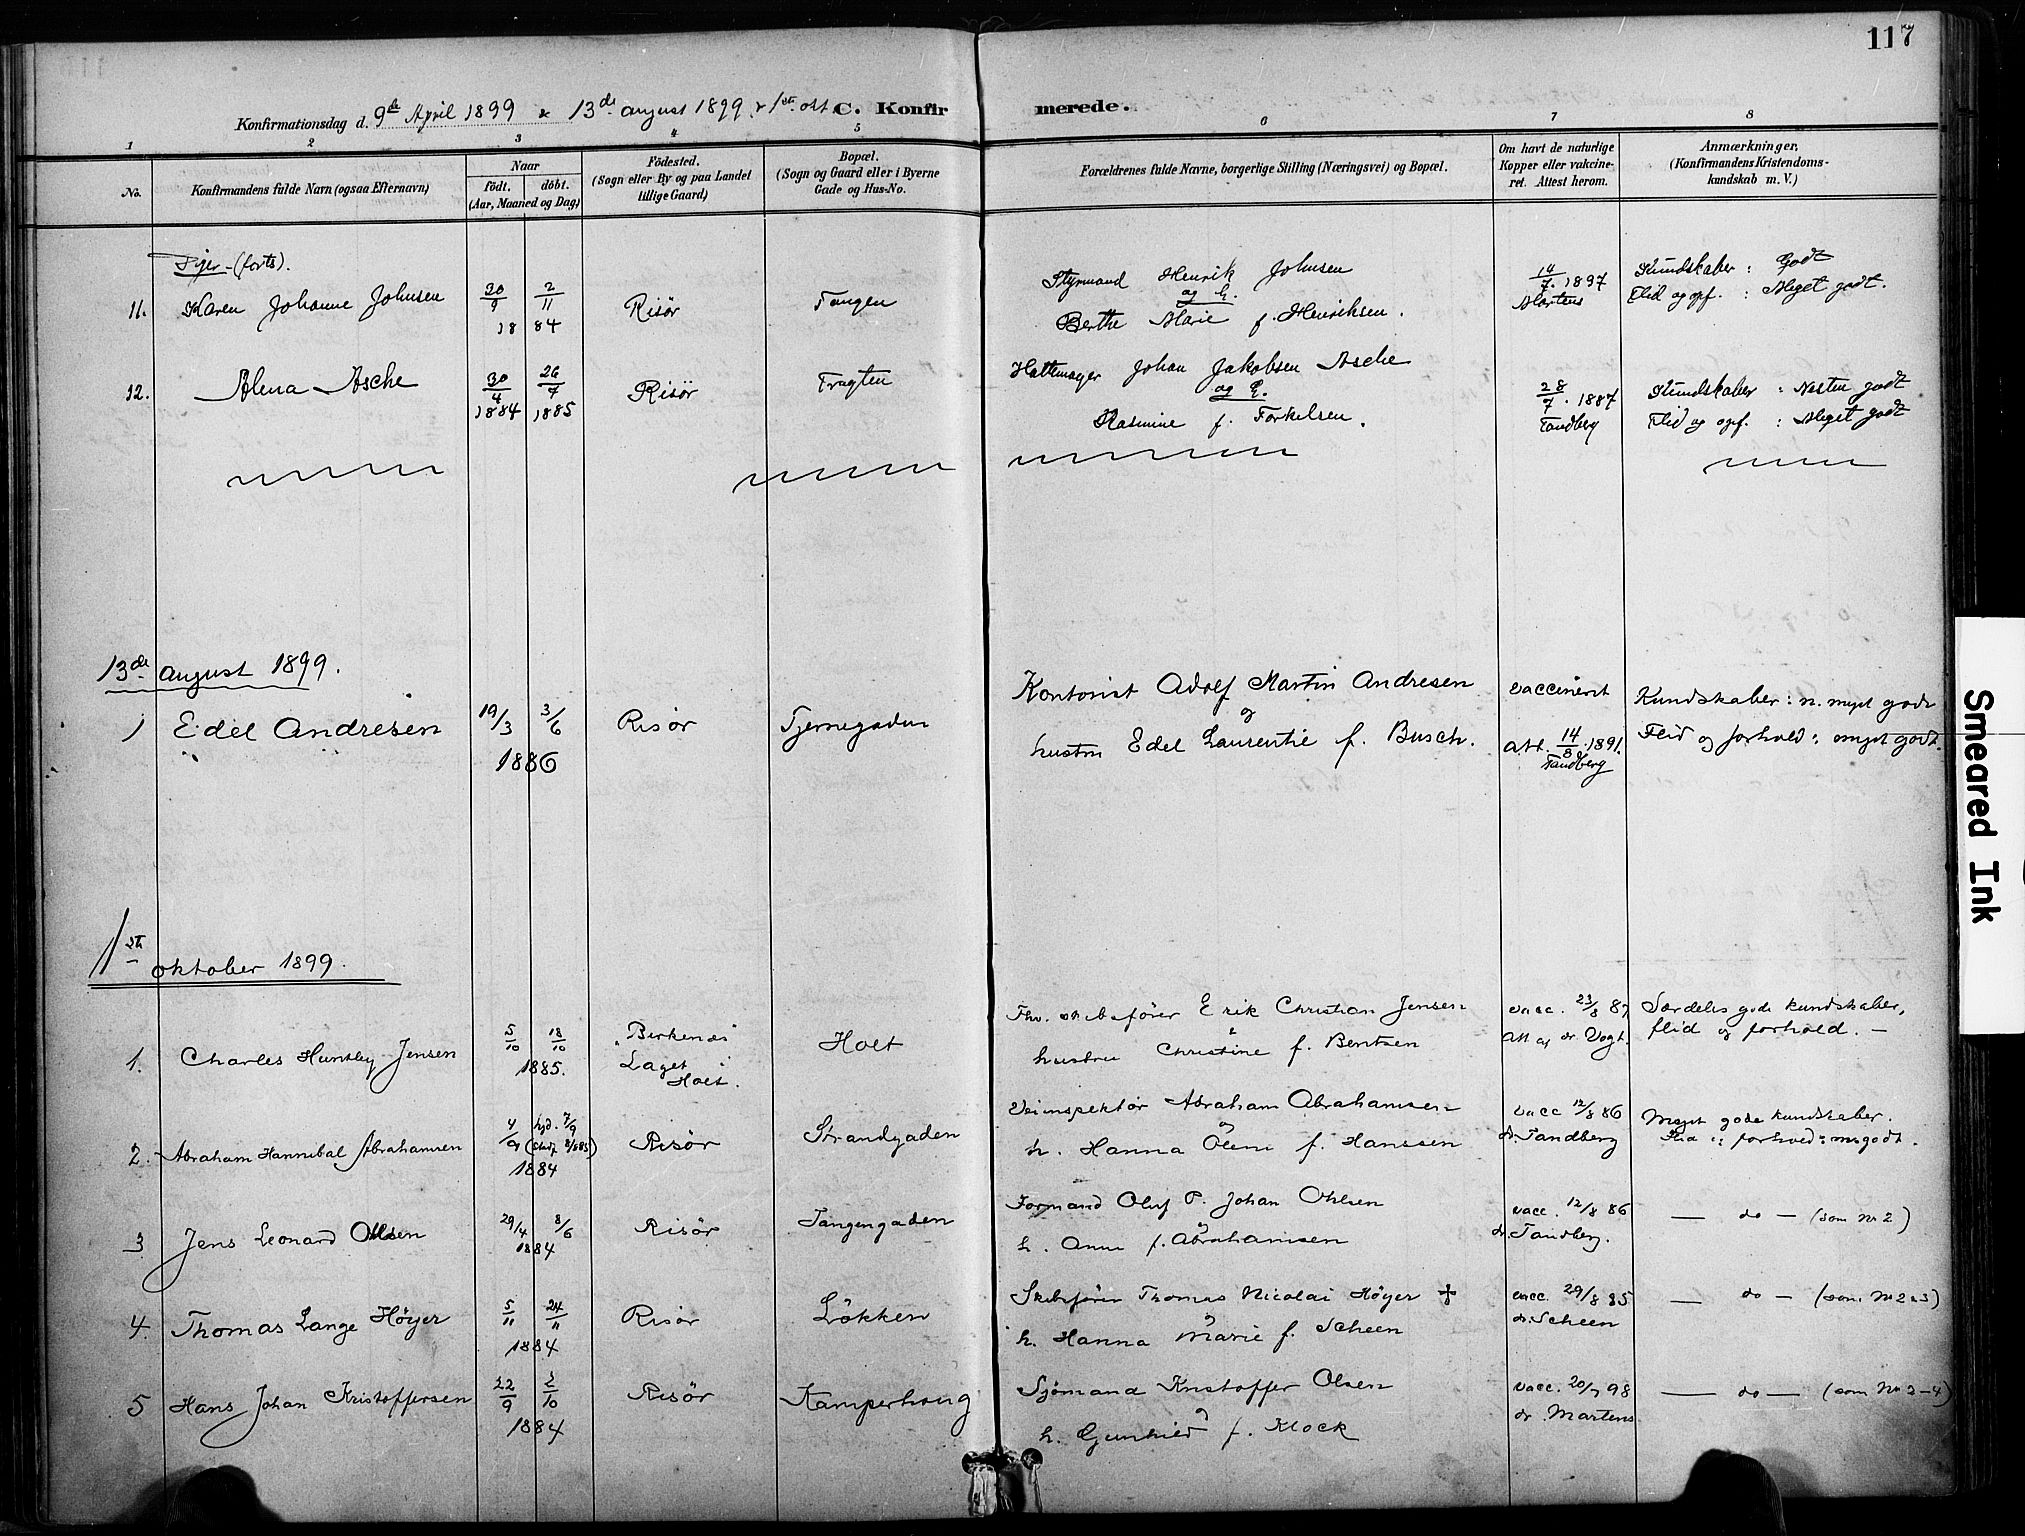 117
Konfirmationsdag d. 9de April 1899 & 13de august 1899 & 1ste okt. C. Konfirmerede.
1 2 3 4 5 6 7 8
No.
Konfirmandens fulde Navn (ogsaa Efternavn)
Naar
födt. döbt.
(Aar, Maaned og Dag)
Födested.
(Sogn eller By og paa Landet
tillige Gaard)
Bopæl.
(Sogn og Gaard eller i Byerne
Gade og Hus-No.
Forældrenes fulde Navne, borgerlige Stilling (Næringsvei) og Bopæl.
Om havt de naturlige
Kopper eller vakcine-
ret. Attest herom.
Anmærkninger,
(Konfirmandens Kristendoms-
kundskab m. V.)
Piger - (forts).
11. Karen Johanne Johnsen 30/9 2/11 1884 Risör Tangen
Styrmand Henrik Johnsen
og h.
Berthe Marie f. Henriksen.
14/7. 1897
Martens
Kundskaber: Godt
Flid og opf.: Meget godt.
12. Alena Asche 30/4 1884 26/7 1885 Risör Fragten
Hattemager Johan Jakobsen Asche
og h.
Rasmine f. Torkelsen.
28/7. 1887
Tandberg
Kundskaber: Nesten godt
Flid og opf.: Meget godt
13de august 1899.
1 Edel Andresen 19/3 3/6 1886 Risør Tjernegaden
Kontorist Adolf Martin Andresen
og
hustru Edel Laurentie f. Busch.
vaccineret
att. 14/8 1891.
Tandberg
Kundskaber: n. meget godt
Flid og forhold: meget godt.
1ste oktober 1899.
1. Charles Huntley Jensen 5/10 18/10 1885. Birkenes Laget Holt. Holt
Fhv. skibsfører Erik Christian Jensen
hustru Christine f. Bentsen
vacc. 23/8 87
att af dr. Vogt.
Særdeles gode kundskaber,
flid og forhold. —
2. Abraham Hannibal Abrahamsen 4/9 hjd. 7/9 1884 Risør Strandgaden
Veiinspektør Abraham Abrahamsen
og
h. Hanna Olene f. Hanssen
vacc 12/8 86
dr. Tandberg
Meget gode kundskaber.
Flid og forhold: mgodt.
3 Jens Leonard Ohlsen 29/4 8/6 1884 Risør Tangengaden
Formand Oluf P. Johan Ohlsen
og
h. Anne f. Abrahamsen
vacc. 12/8 86
dr. Tandberg.
— do — (som Nr 2)
4. Thomas Lange Høyer 5/11 24/11 1884 Risør Løkken
Skibsfører Thomas Nicolai Høyer +
og
h. Hanna Marie f. Scheen
vacc. 29/8 85
dr. Scheen
— do — (som Nr 2 & 3)
5 Hans Johan Kristoffersen 22/9 2/10 1884 Risør Kamperhoug
Sjømand Kristoffer Olsen
og
h. Gunhild f. Klock
vacc. 20/7 98
dr. Martens
— do — (som Nr 2-4)
Smeared Ink